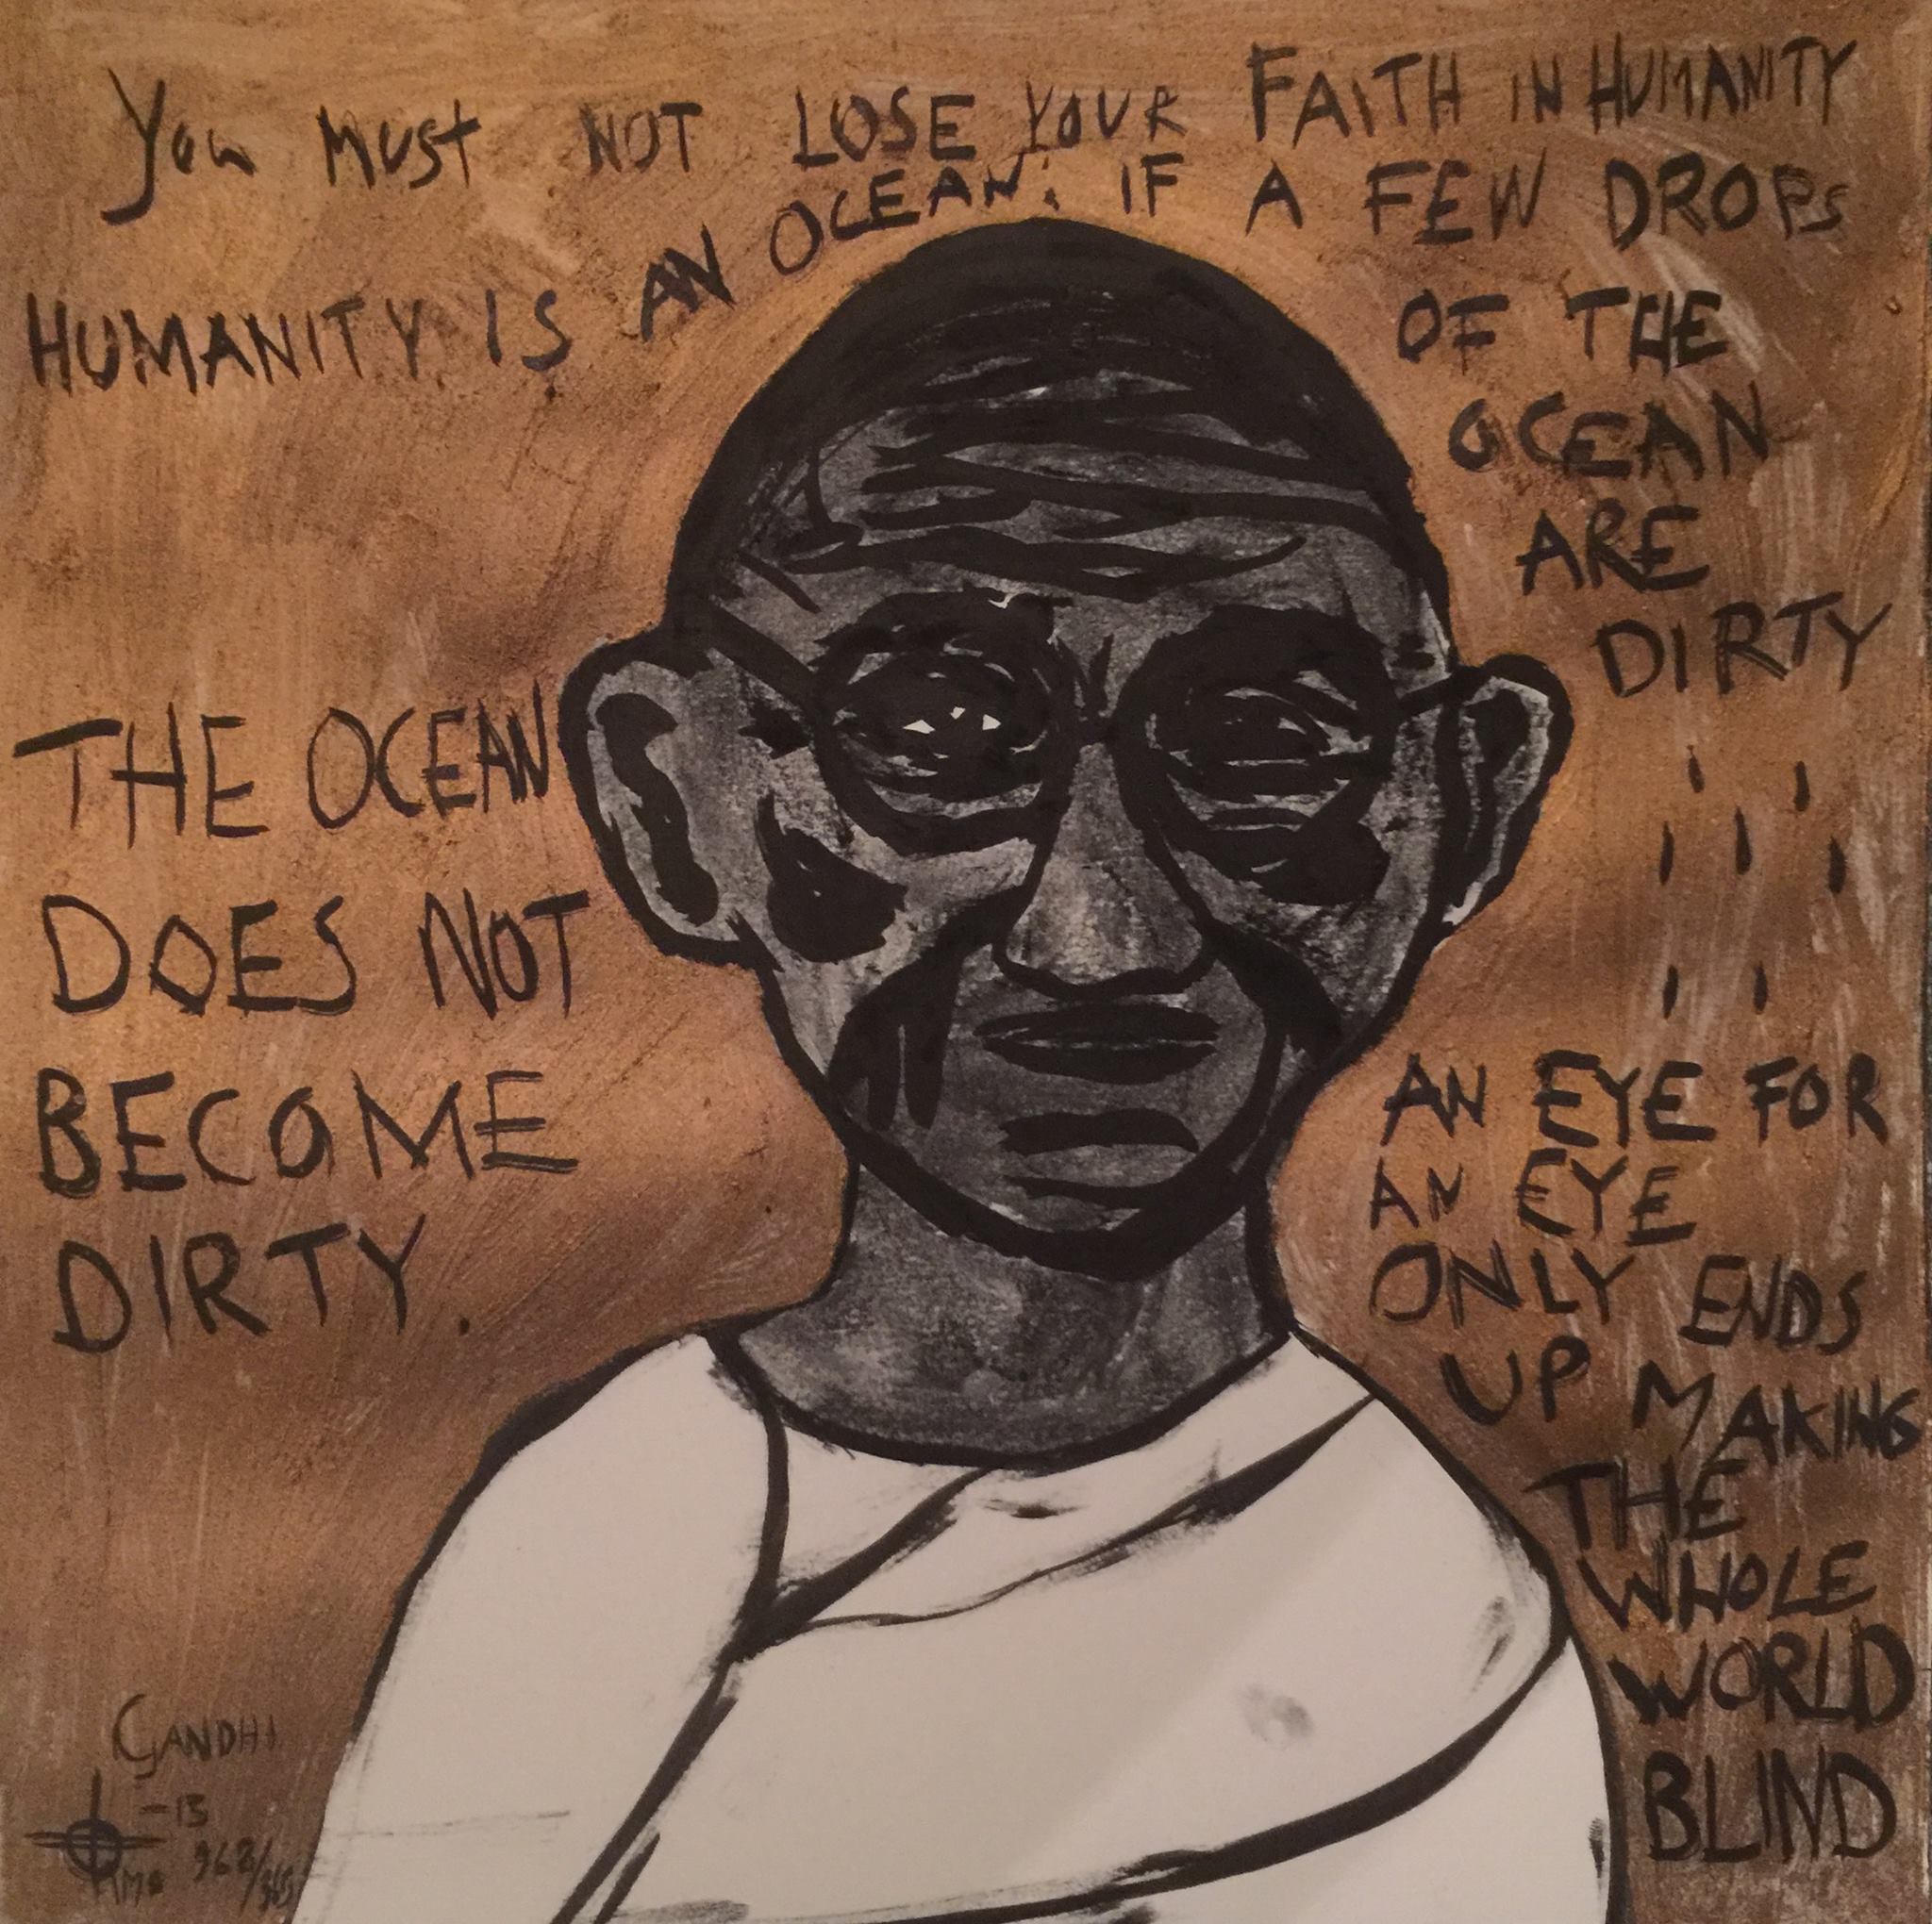 You MUST NOT LOSE YOUR FAITH IN HUMANITY
HUMANITY IS AN OCEAN. IF A FEW DROPS
OF THE
OCEAN
ARE
DIRTY
THE OCEAN
DOES NOT
BECOME
DIRTY.
AN EYE FOR
AN EYE
ONLY ENDS
UP MAKING
THE
WHOLE
WORLD
BLIND
GANDHI
-13